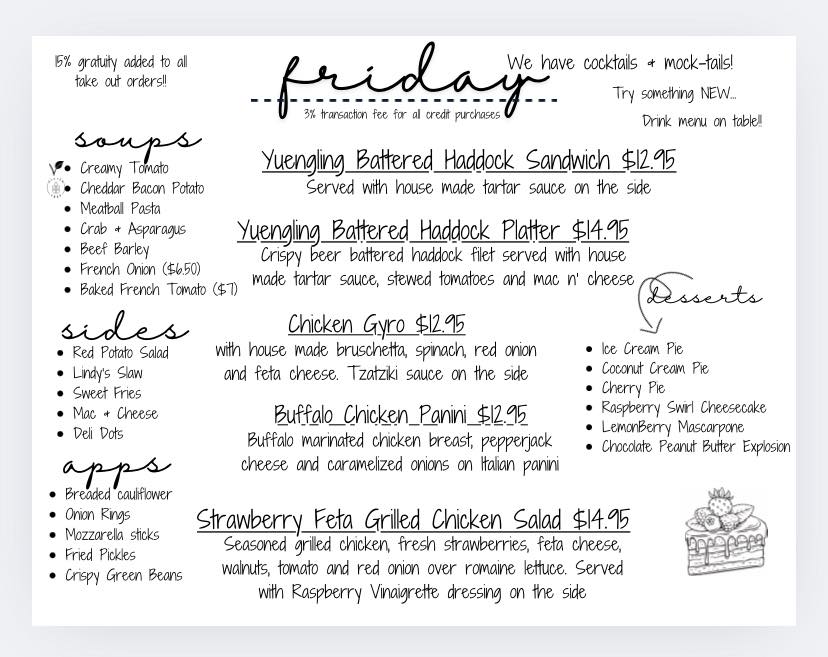 15% gratuity added to all
take out orders!!
friday
3% transaction fee for all credit purchases
We have cocktails & mock-tails!
Try something NEW...
Drink menu on table!!
soups
• Creamy Tomato
• Cheddar Bacon Potato
• Meatball Pasta
• Crab & Asparagus
• Beef Barley
• French Onion ($6.50)
• Baked French Tomato ($7)
sides
• Red Potato Salad
• Lindy's Slaw
• Sweet Fries
• Mac & Cheese
• Deli Dots
apps
• Breaded cauliflower
• Onion Rings
• Mozzarella sticks
• Fried Pickles
• Crispy Green Beans
Yuengling Battered Haddock Sandwich $12.95
Served with house made tartar sauce on the side
Yuengling Battered Haddock Platter $14.95
Crispy beer battered haddock filet served with house
made tartar sauce, stewed tomatoes and mac n' cheese
Chicken Gyro $12.95
with house made bruschetta, spinach, red onion
and feta cheese. Tzatziki sauce on the side
Buffalo Chicken Panini $12.95
Buffalo marinated chicken breast, pepperjack
cheese and caramelized onions on Italian panini
Strawberry Feta Grilled Chicken Salad $14.95
Seasoned grilled chicken, fresh strawberries, feta cheese,
walnuts, tomato and red onion over romaine lettuce. Served
with Raspberry Vinaigrette dressing on the side
desserts
• Ice Cream Pie
• Coconut Cream Pie
• Cherry Pie
• Raspberry Swirl Cheesecake
• LemonBerry Mascarpone
• Chocolate Peanut Butter Explosion